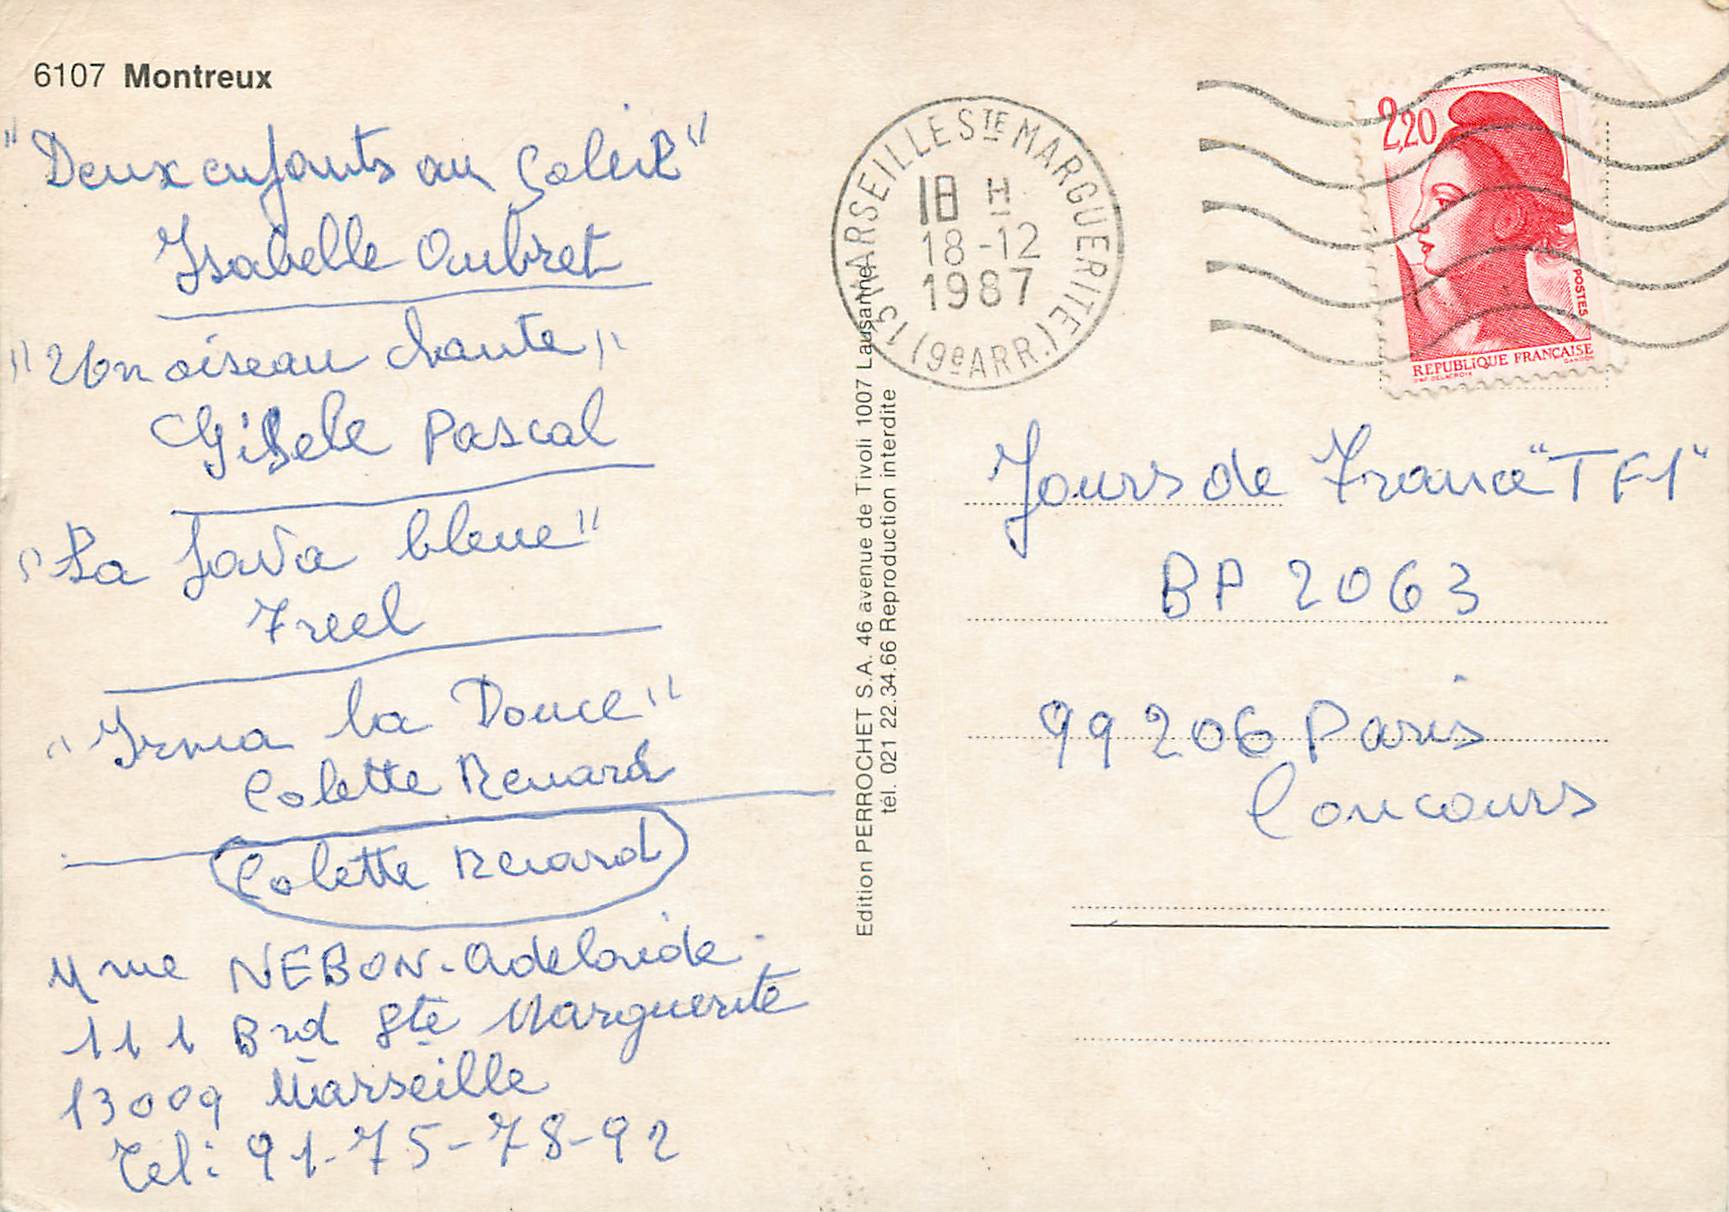 6107 Montreux
"Deux enfants au Soleil"
Isabelle Aubret
"Un oiseau chante"
Gisele Pascal
"La Java bleue"
Freel
"Irma la Douce"
Colette Renard
Colette Renard
Mme NEBON-Adelaide.
111 Brd Ste Marguerite
13009 Marseille
Tel: 91-75-78-92
Edition PERROCHET S.A. 46 avenue de Tivoli 1007 Lausanne
tél. 021 22.34.66 Reproduction interdite
13 MARSEILLE STE MARGUERITE (9e ARR.)
18 H
18-12
1987
2,20
POSTES
REPUBLIQUE FRANÇAISE
GANDON
D'AP. DELACROIX
Jours de France "TF1"
BP 2063
99206 Paris
Concours